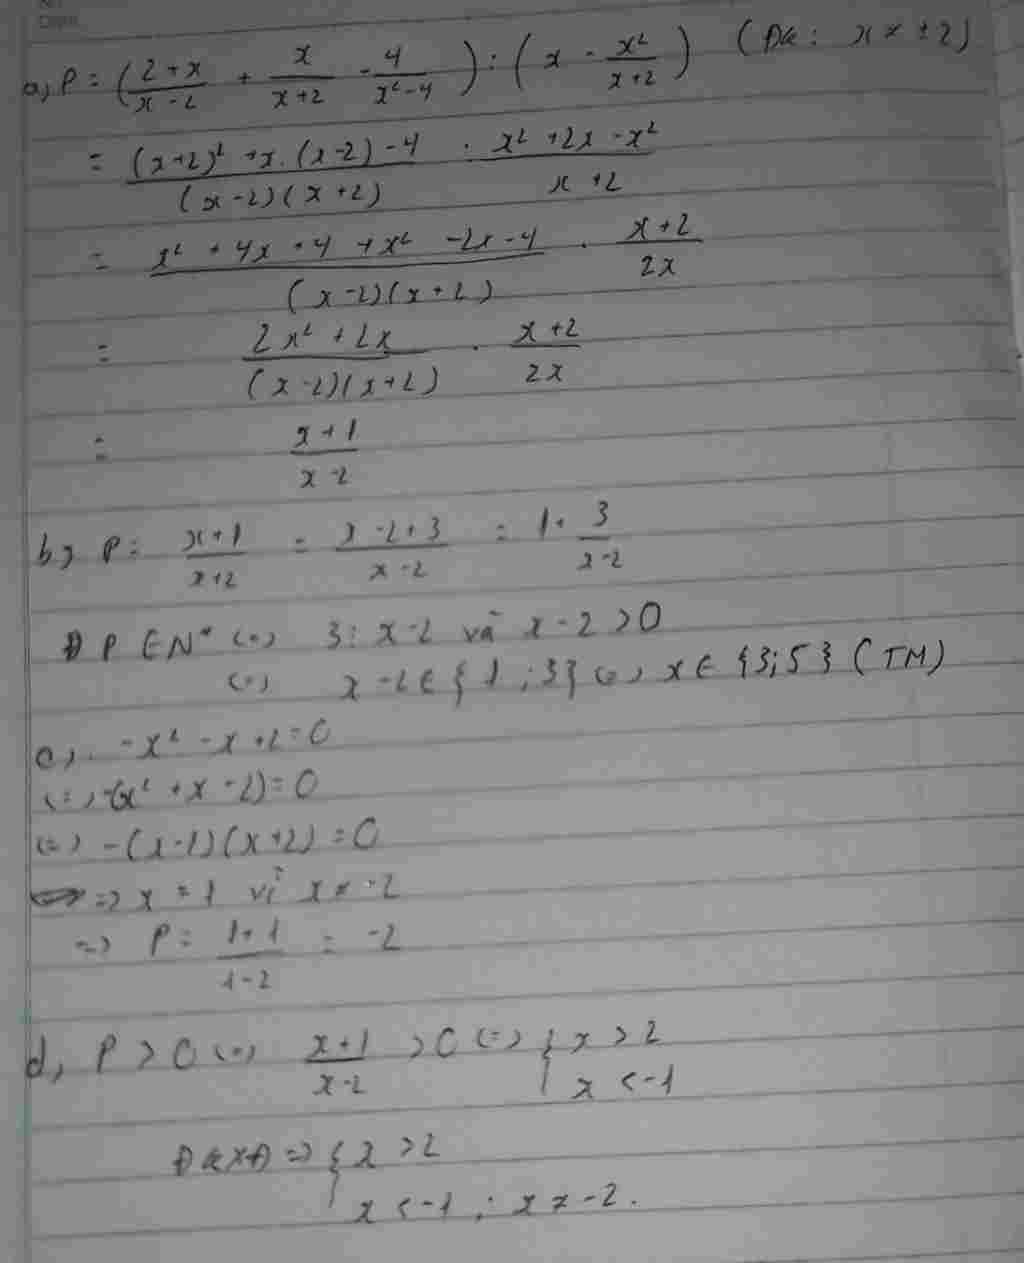 a, P = (2+x/x-2 + x/x+2 - 4/x²-4) : (x - x²/x+2) (ĐK: x ≠ ±2)
= (x+2)² + x.(x-2) - 4/(x-2)(x+2) . x² + 2x - x²/x+2
= x² + 4x + 4 + x² - 2x - 4/(x-2)(x+2) . x+2/2x
= 2x² + 2x/(x-2)(x+2) . x+2/2x
= x+1/x-2
b, P = x+1/x+2 = x-2+3/x-2 = 1 + 3/x-2
Đ P ∈ N* (=) 3 ⋮ x-2 và x-2 > 0
(=) x-2 ∈ {1; 3} (=) x ∈ {3; 5} (TM)
c, -x² - x + 2 = 0
(=) -(x² + x - 2) = 0
(=) -(x-1)(x+2) = 0
=> x = 1 vì x ≠ -2
=) P = 1+1/1-2 = -2
d, P > 0 (=) x+1/x-2 > 0 (=) { x > 2
x < -1
ĐKXĐ => { x > 2
x < -1 ; x ≠ -2.